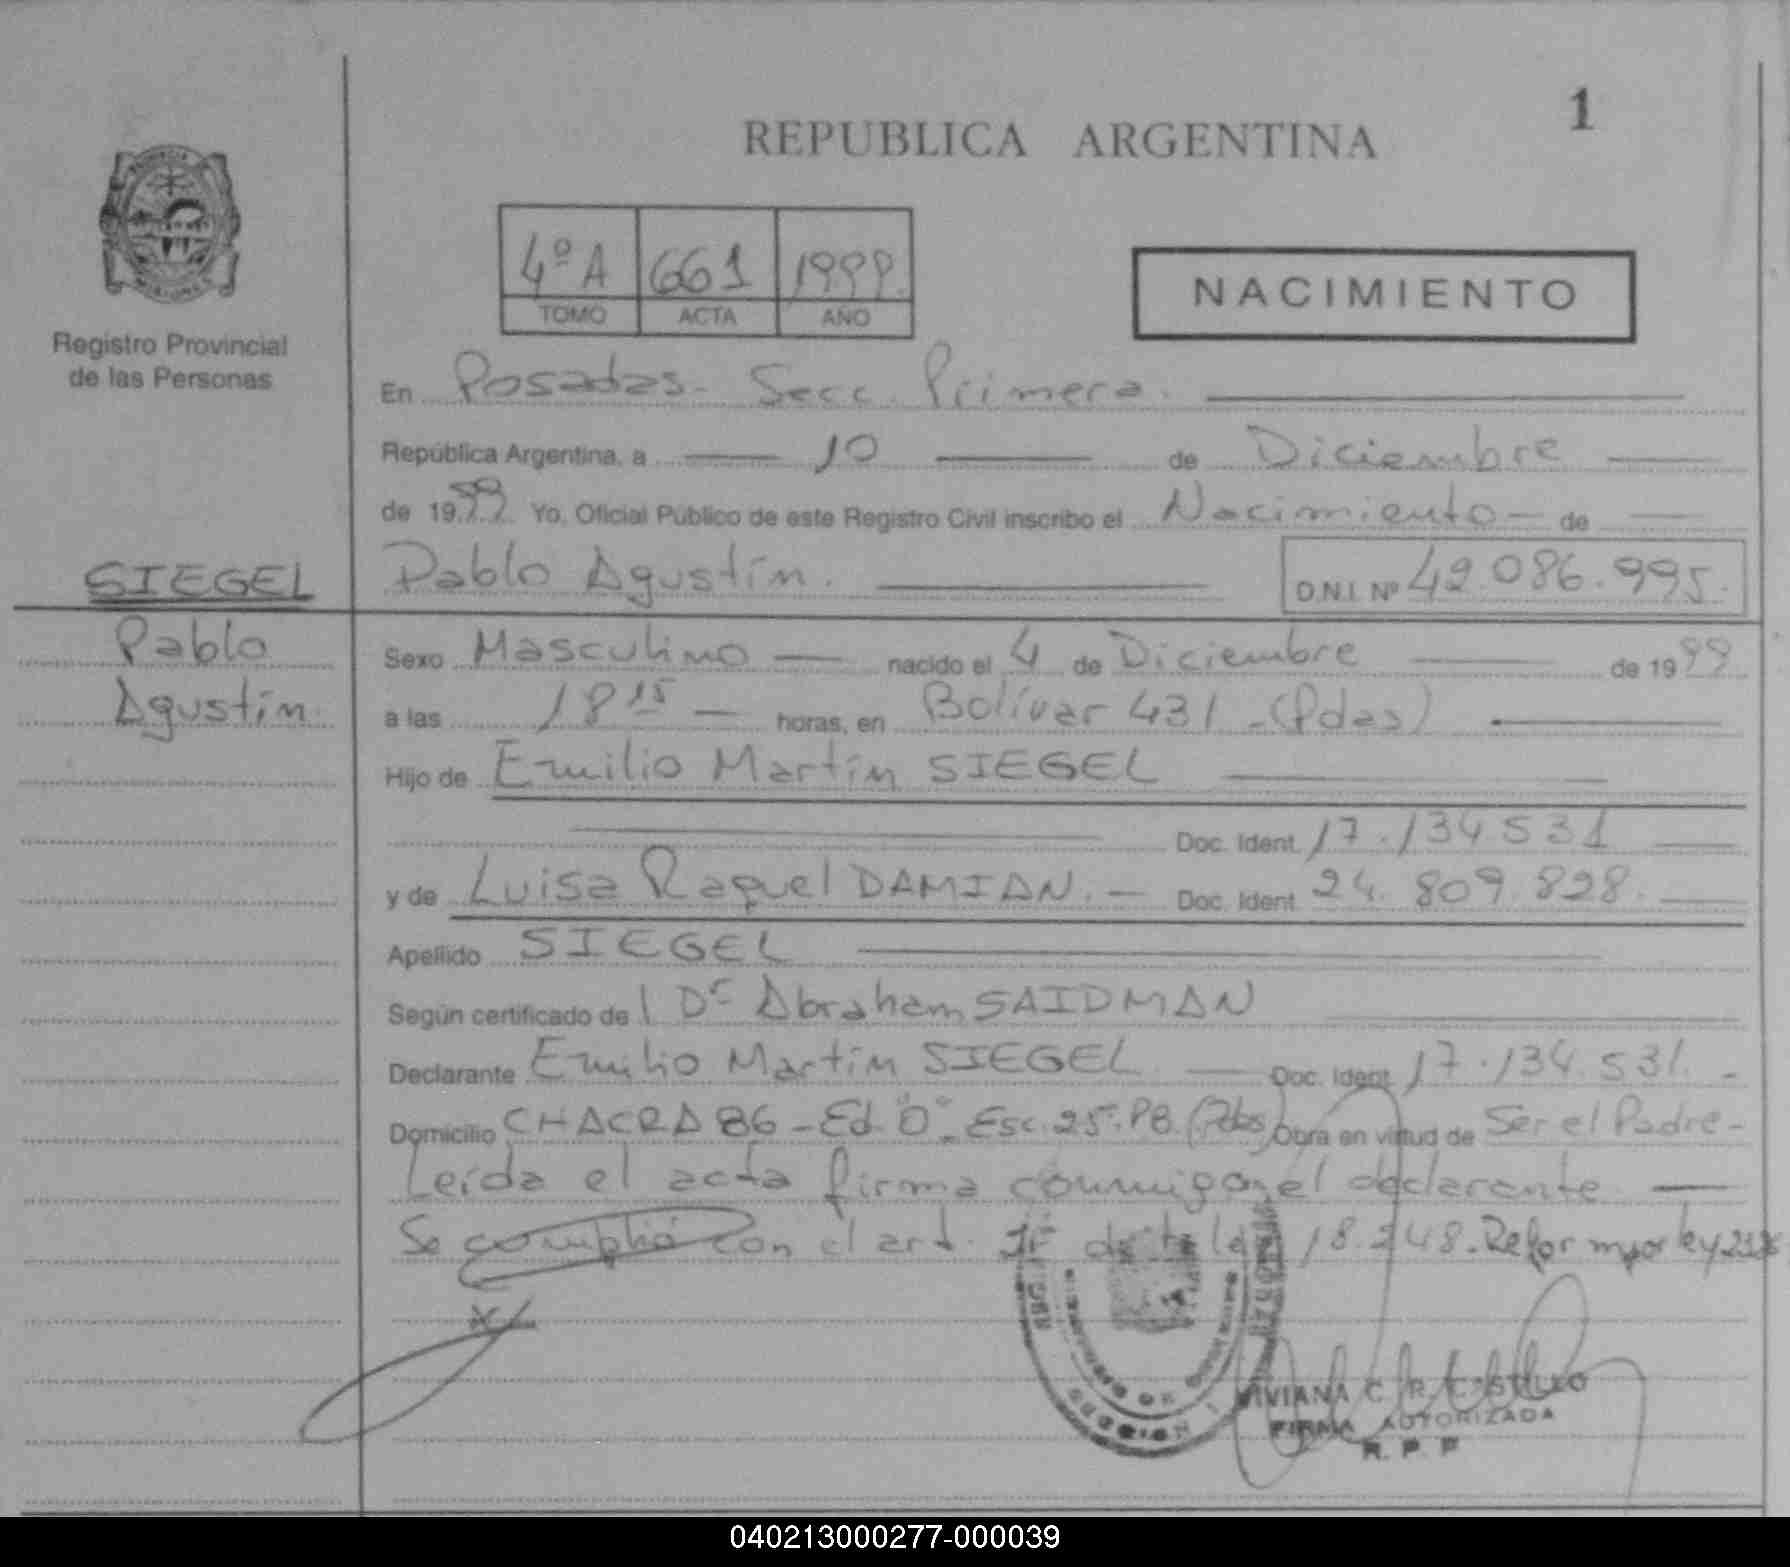 REPUBLICA ARGENTINA
1
MISIONES
Registro Provincial
de las Personas
4º A 661 1999.
TOMO ACTA AÑO
NACIMIENTO
En Posadas - Secc. Primera.
República Argentina, a 10 de Diciembre
de 1999 Yo, Oficial Público de este Registro Civil inscribo el Nacimiento - de
SIEGEL
Pablo Agustín.
D.N.I. Nº 42.086.995.
Pablo
Agustín.
Sexo Masculino nacido el 4 de Diciembre de 1999
a las 18 15 horas, en Bolívar 431 - (Pdas)
Hijo de Emilio Martín SIEGEL
Doc. Ident. 17.134531
y de Luisa Raquel DAMIAN. - Doc. Ident. 24.809.828.
Apellido SIEGEL
Según certificado de l Dr Abraham SAIDMAN
Declarante Emilio Martín SIEGEL Doc. Ident. 17.134.531. -
Domicilio CHACRA 86 - Ed. "O" - Esc. 25 - PB. (Pdas) Obra en virtud de Ser el Padre -
Leída el acta firma conmigo, el declarante.
Se cumplió con el art. de la 18.248. Refor mpor ley
VIVIANA C.
FIRMA AUTORIZADA
R. P. P
040213000277-000039